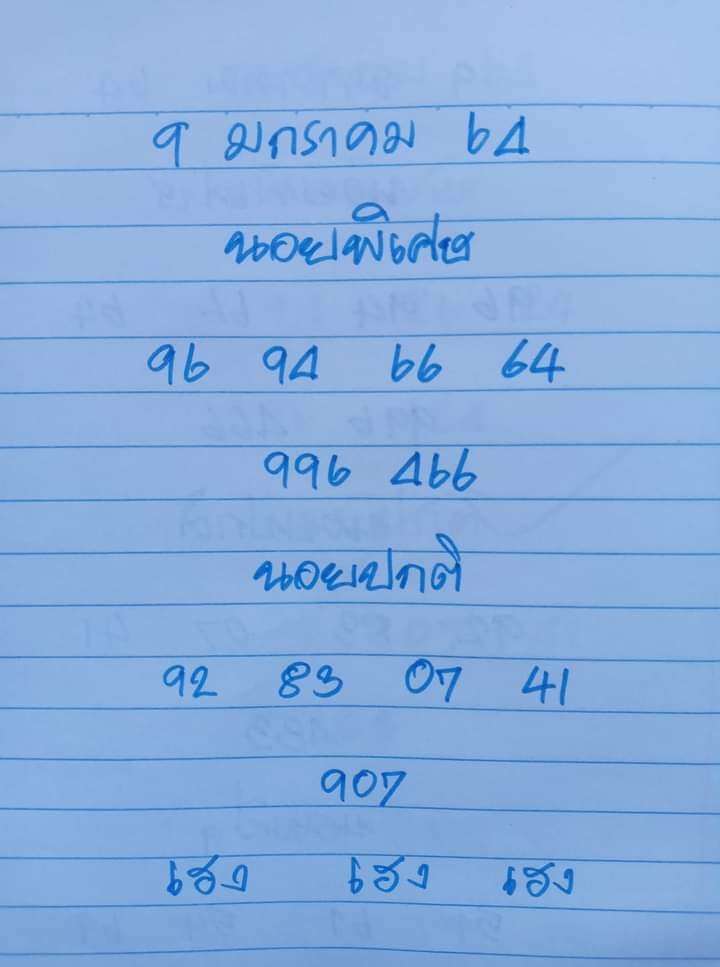 9 มกราคม 64
นอยพิเศษ
96 94 66 64
996 466
นอยปกติ
92 83 07 41
907
เฮง เฮง เฮง